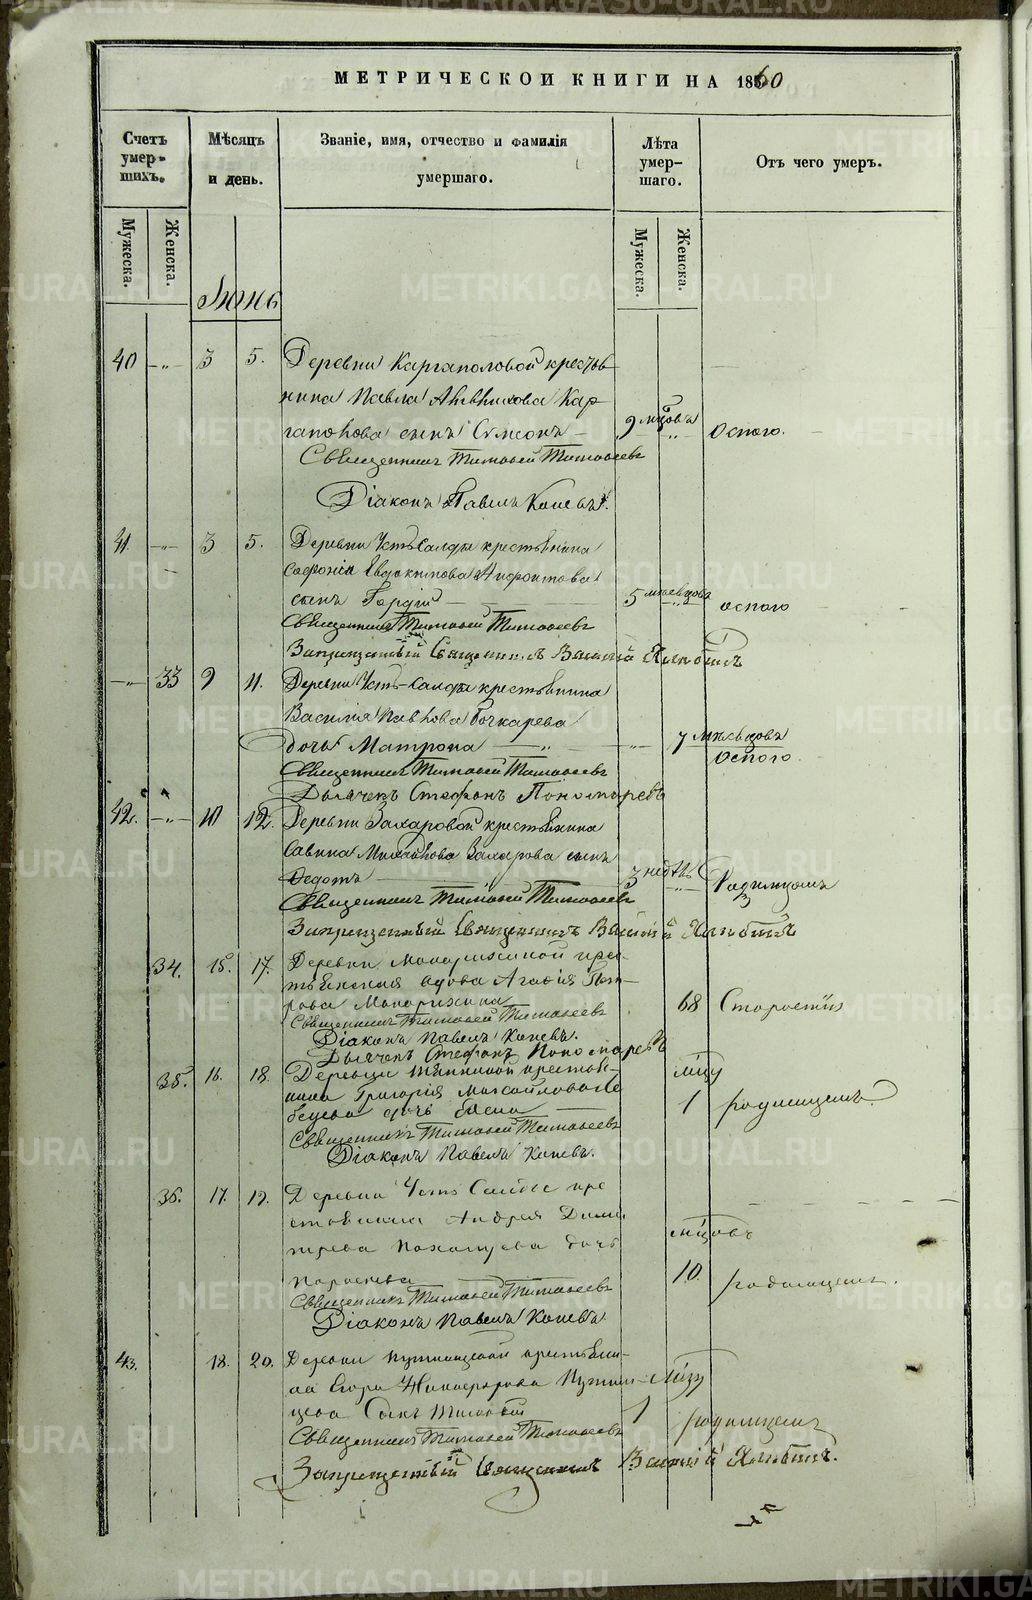 МЕТРИЧЕСКОЙ КНИГИ НА 1860
Счетъ умершихъ.
Мѣсяцъ и день.
Званіе, имя, отчество и фамилія умершаго.
Лѣта умершаго.
Отъ чего умеръ.
Мужеска.
Женска.
Мужеска.
Женска.
Іюнь
40 -„- 3 5. Деревни Каргаполовой крестья-
нина Павла Кар-
гаполова сынъ Симеонъ — 9 мцовъ -„- Оспою.
Священникъ Тимофей Тимофеевъ
Діаконъ Павелъ Копевъ.
41. -„- 3 5. Деревни Усть Салды крестьянина
Софонія Евдокимова
сынъ Гордій — 5 месяцовъ -„- оспою
Священникъ Тимофей Тимофеевъ
Запрещенный Священникъ Василій
-„- 33 9 11. Деревни Усть-Салды крестьянина
Василія Павлова Бочкарева
дочь Матрона -„- 7 мѣсяцовъ
Оспою.
Священникъ Тимофей Тимофеевъ
Дьячекъ Стефанъ Пономаревъ
42. -„- 10 12. Деревни Захаровой крестьянина
Савина Михайлова Захарова сынъ
Федотъ — 3 недѣль -„- Родимцомъ
Священникъ Тимофей Тимофеевъ
Запрещенный Священникъ Василій
34. 15. 17. Деревни Макарихиной крес-
тьянская вдова Агафія Пет-
рова Макарихина 68 Старостію
Священникъ Тимофей Тимофеевъ
Діаконъ Павелъ Копевъ.
Дьячекъ Стефанъ Пономаревъ
35. 16. 18. Деревни крестья-
нина Григорія Михайлова
дочь Елена — 1 мѣсяцу родимцемъ.
Священникъ Тимофей Тимофеевъ
Діаконъ Павелъ Копевъ.
36. 17. 19. Деревни Усть Салды кре-
стьянина Андрея Дими-
трева дочь мцовъ
Параскева 10. родимцемъ.
Священникъ Тимофей Тимофеевъ
Діаконъ Павелъ Копевъ
43. 18. 20. Деревни Путимцовой крестьяни-
на Егора Никифорова Путим-
цева сынъ Тимофей 1 мѣсяцу родимцемъ
Священникъ Тимофей Тимофеевъ
Запрещенный Священникъ Василій
METRIKI.GASO-URAL.RU